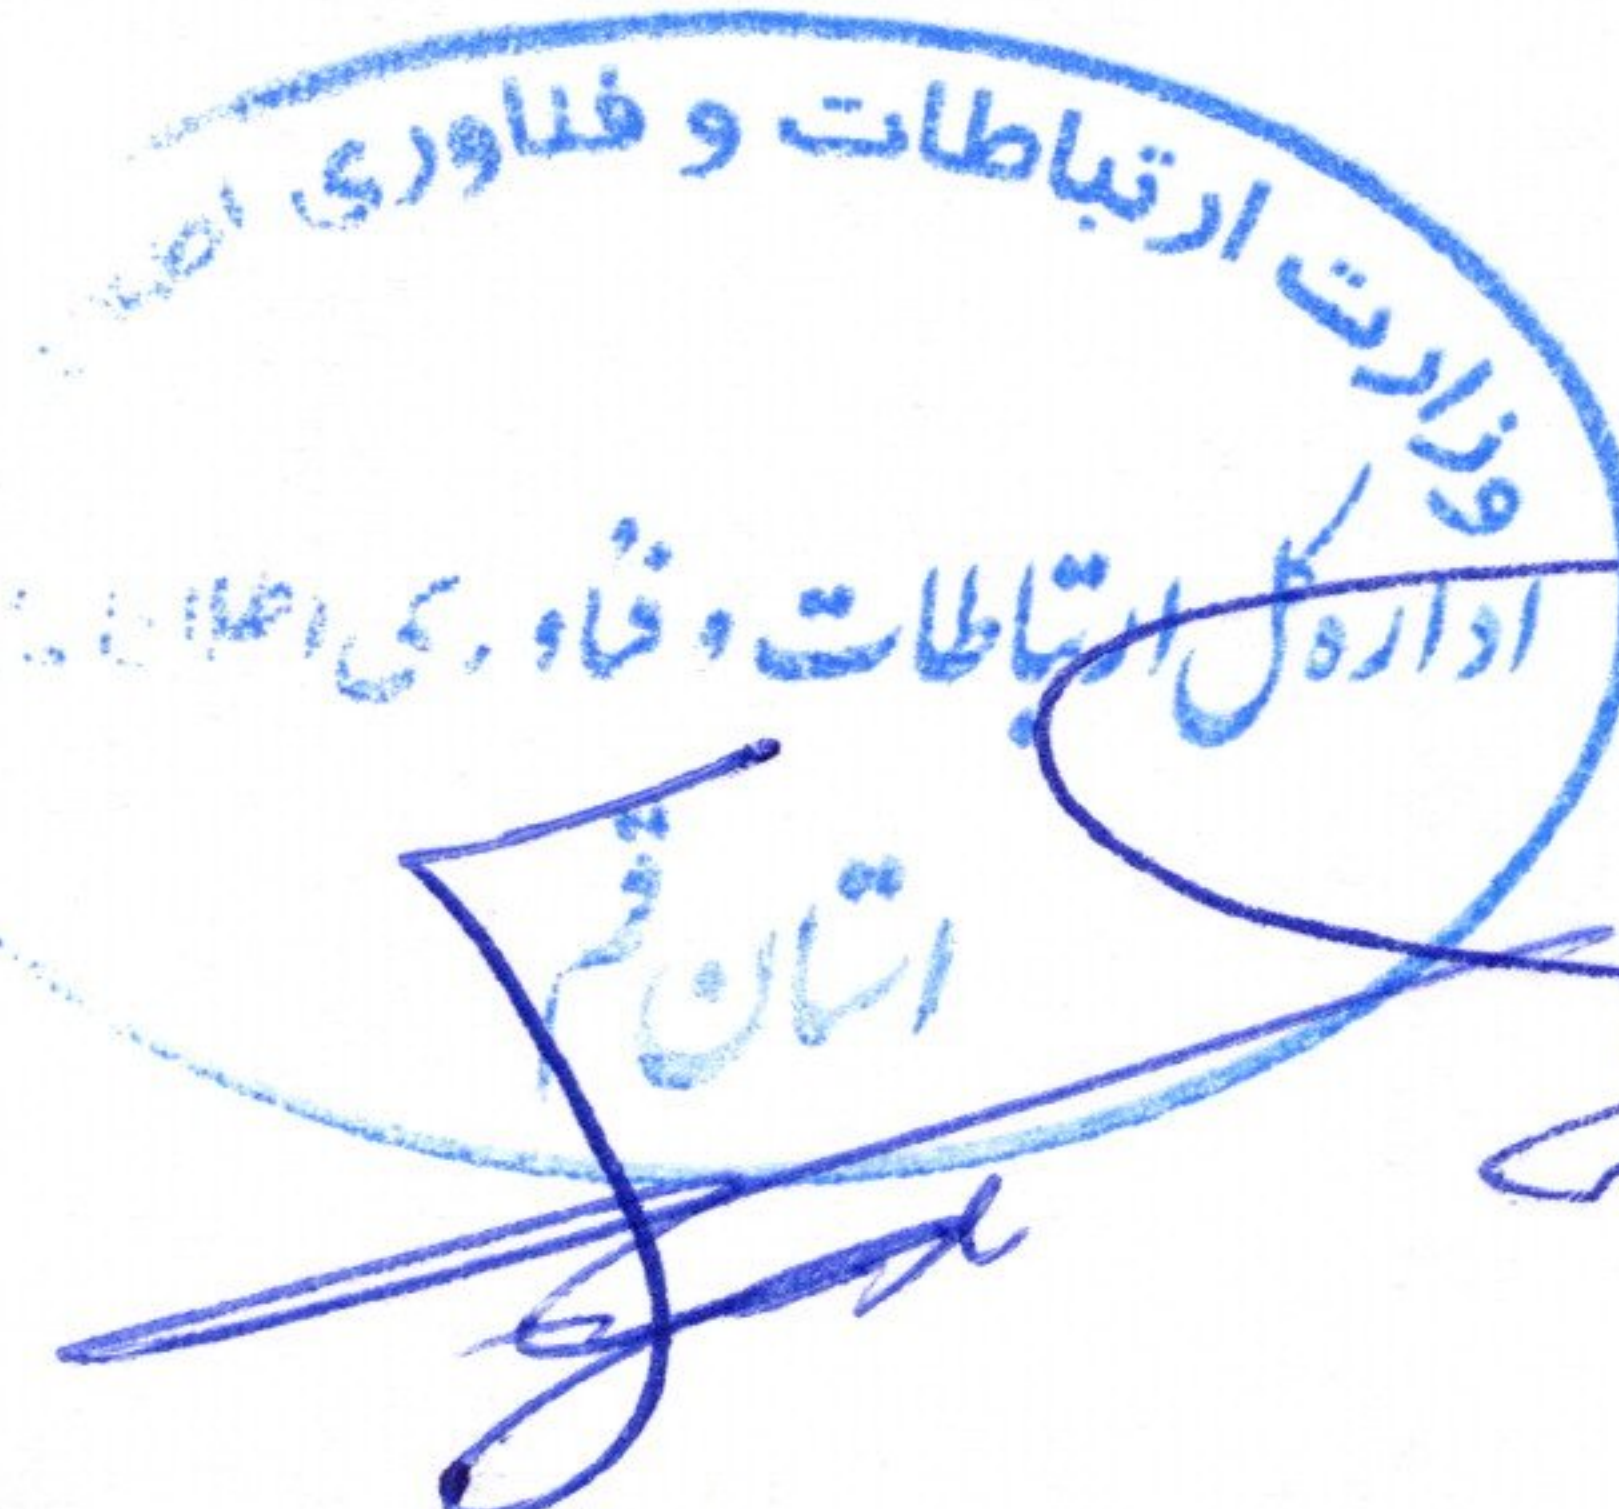 وزارت ارتباطات و فناوری
اداره کل ارتباطات و فناوری اطلاعات
استان قم